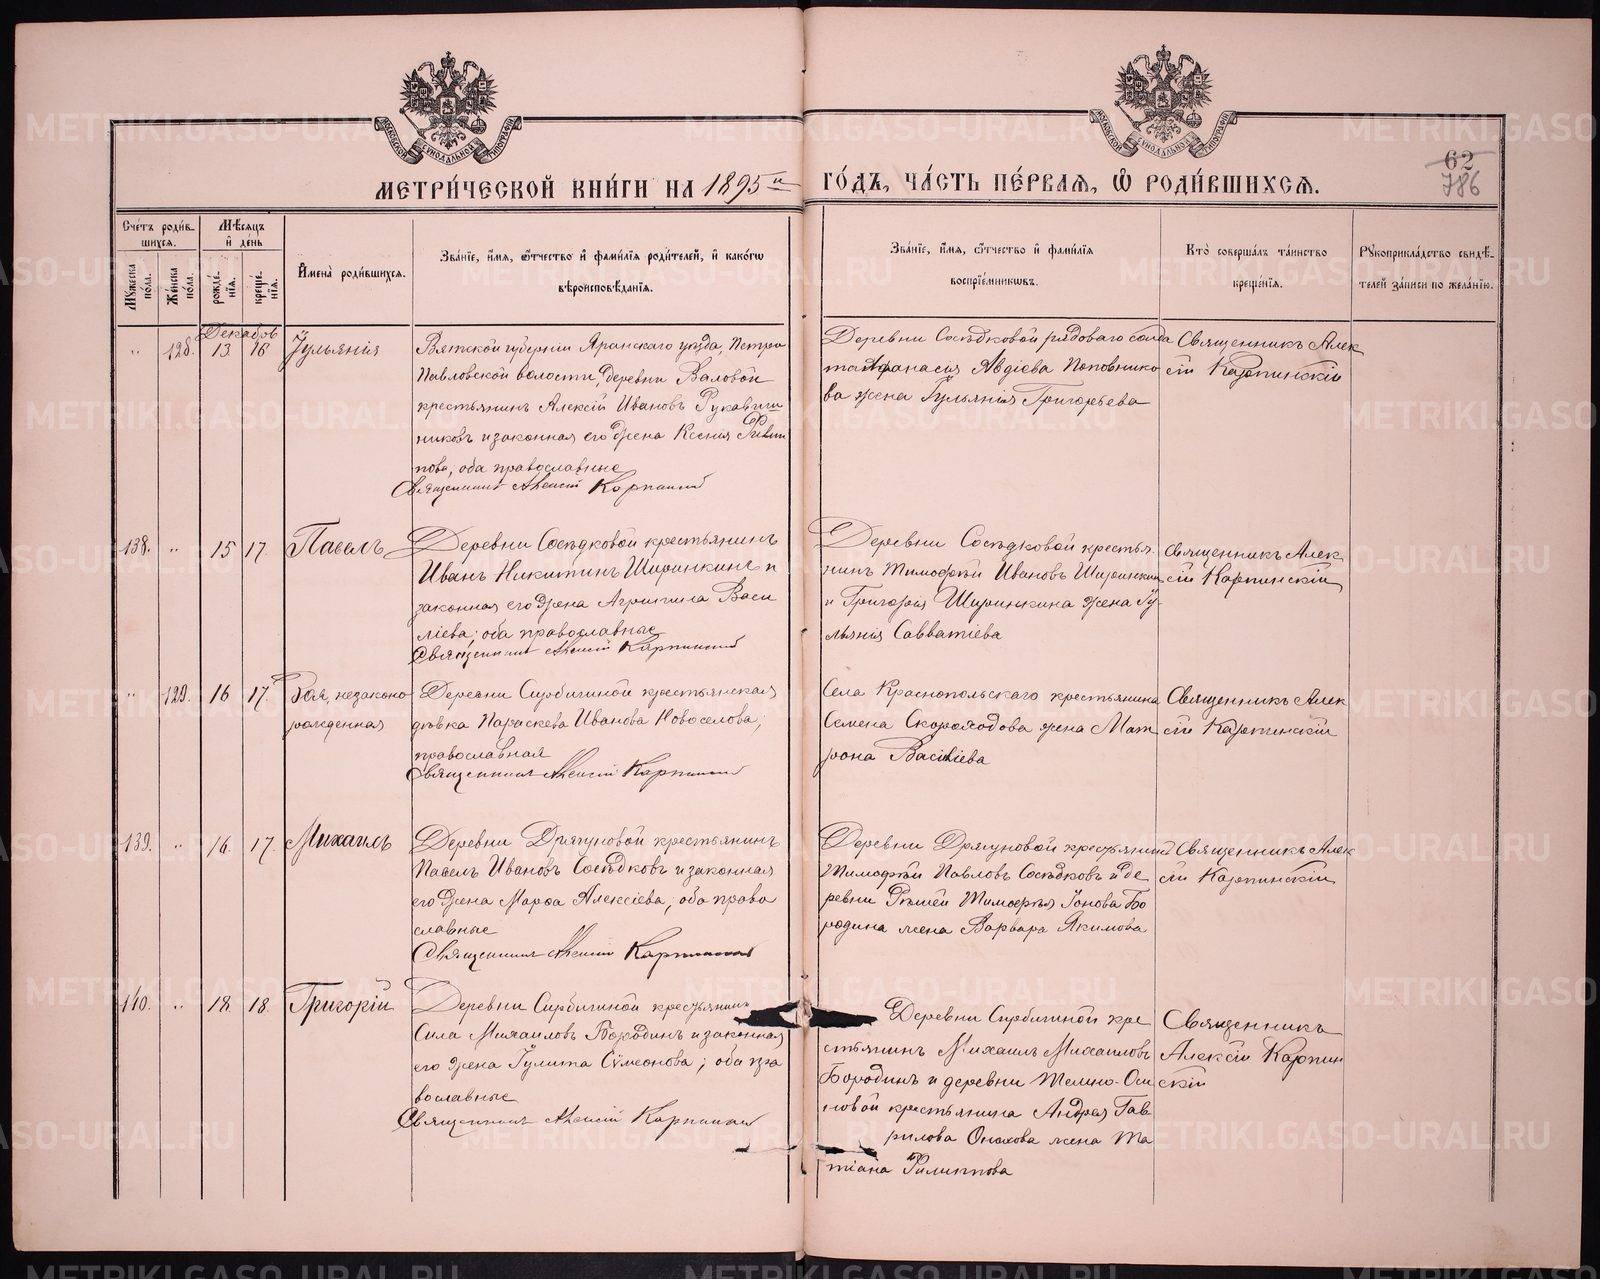 МОСКОВСКОЙ СѴНОДАЛЬНОЙ ТИПОГРАФІИ
МОСКОВСКОЙ СѴНОДАЛЬНОЙ ТИПОГРАФІИ
62
786
МЕТРИ́ЧЕСКОЙ КНИ́ГИ НА 1895й ГО́ДЪ, ЧА́СТЬ ПЕ́РВАЯ, Ѽ РОДИ́ВШИХСЯ.
Сче́тъ роди́в-
шихся.
Мѣсяцъ
и҆ де́нь
Мꙋжеска
по́ла.
Же́нска
по́ла.
рожде́-
нія.
креще́-
нія.
И҆мена̀ роди́вшихся.
Зва́ніе, и҆́мя, ѻ҆́тчество и҆ фами́лїя роди́телей, и҆ како́гѡ
вѣроисповѣ́данія.
Зва́ніе, и҆́мя, ѻ҆́тчество и҆ фами́лїя
воспріе́мникѡвъ.
Кто̀ соверша́лъ та́инство
креще́нія.
Рꙋкоприкла́дство свидѣ́-
телей за́писи по жела́нію.
Декабрь
" 128. 13 16 Іульянія
Вятской губерніи Яранскаго уѣзда, Петро
Павловской волости, деревни Валовой
крестьянинъ Алексій Ивановъ Рукавиш
никовъ и законная его жена Ксенія Филип
пова, оба православные
Священникъ Алексій Карпинскій
Деревни Сосѣдковой рядоваго солда
та Афанасія Авдіева Поповнико
ва жена Іульянія Григорьева
Священникъ Алек
сій Карпинскій
138. " 15 17. Павелъ
Деревни Сосѣдковой крестьянинъ
Иванъ Никитинъ Ширинкинъ и
законная его жена Агрипина Васи
ліева; оба православные
Священникъ Алексій Карпинскій
Деревни Сосѣдковой крестья
нинъ Тимофей Ивановъ Ширинкин
и Григорія Ширинкина жена Іу-
льянія Савватіева
Священникъ Алек
сій Карпинскій
" 129. 16 17. Зоя, незаконо
рожденная
Деревни Сирбишной крестьянская
дѣвка Параскева Иванова Новоселова;
православная
Священникъ Алексій Карпинскій
Села Краснопольскаго крестьянина
Семена Скороходова жена Мат
рона Василіева
Священникъ Алек
сій Карпинскій
139. " 16. 17. Михаилъ
Деревни Дрягуновой крестьянинъ
Павелъ Ивановъ Сосѣдковъ и законная
его жена Марфа Алексіева; оба право
славные
Священникъ Алексій Карпинскій
Деревни Дрягуновой крестьянинъ
Тимофей Павловъ Сосѣдковъ и де
ревни Рѣшей Тимофея Іонова Бо
родина жена Варвара Якимова
Священникъ Алек
сій Карпинскій
140. " 18. 18. Григорій
Деревни Сирбишной крестьянинъ
Сила Михаиловъ Бородинъ и законная
его жена Іулита Сѵмеонова; оба пра
вославные
Священникъ Алексій Карпинскій
Деревни Сирбишной кре
стьянинъ Михаилъ Михаиловъ
Бородинъ и деревни Темно-Оси
новой крестьянина Андрея Гав
рилова Онохова жена Та
тіана Филиппова
Священникъ
Алексій Карпин
скій
METRIKI.GASO-URAL.RU